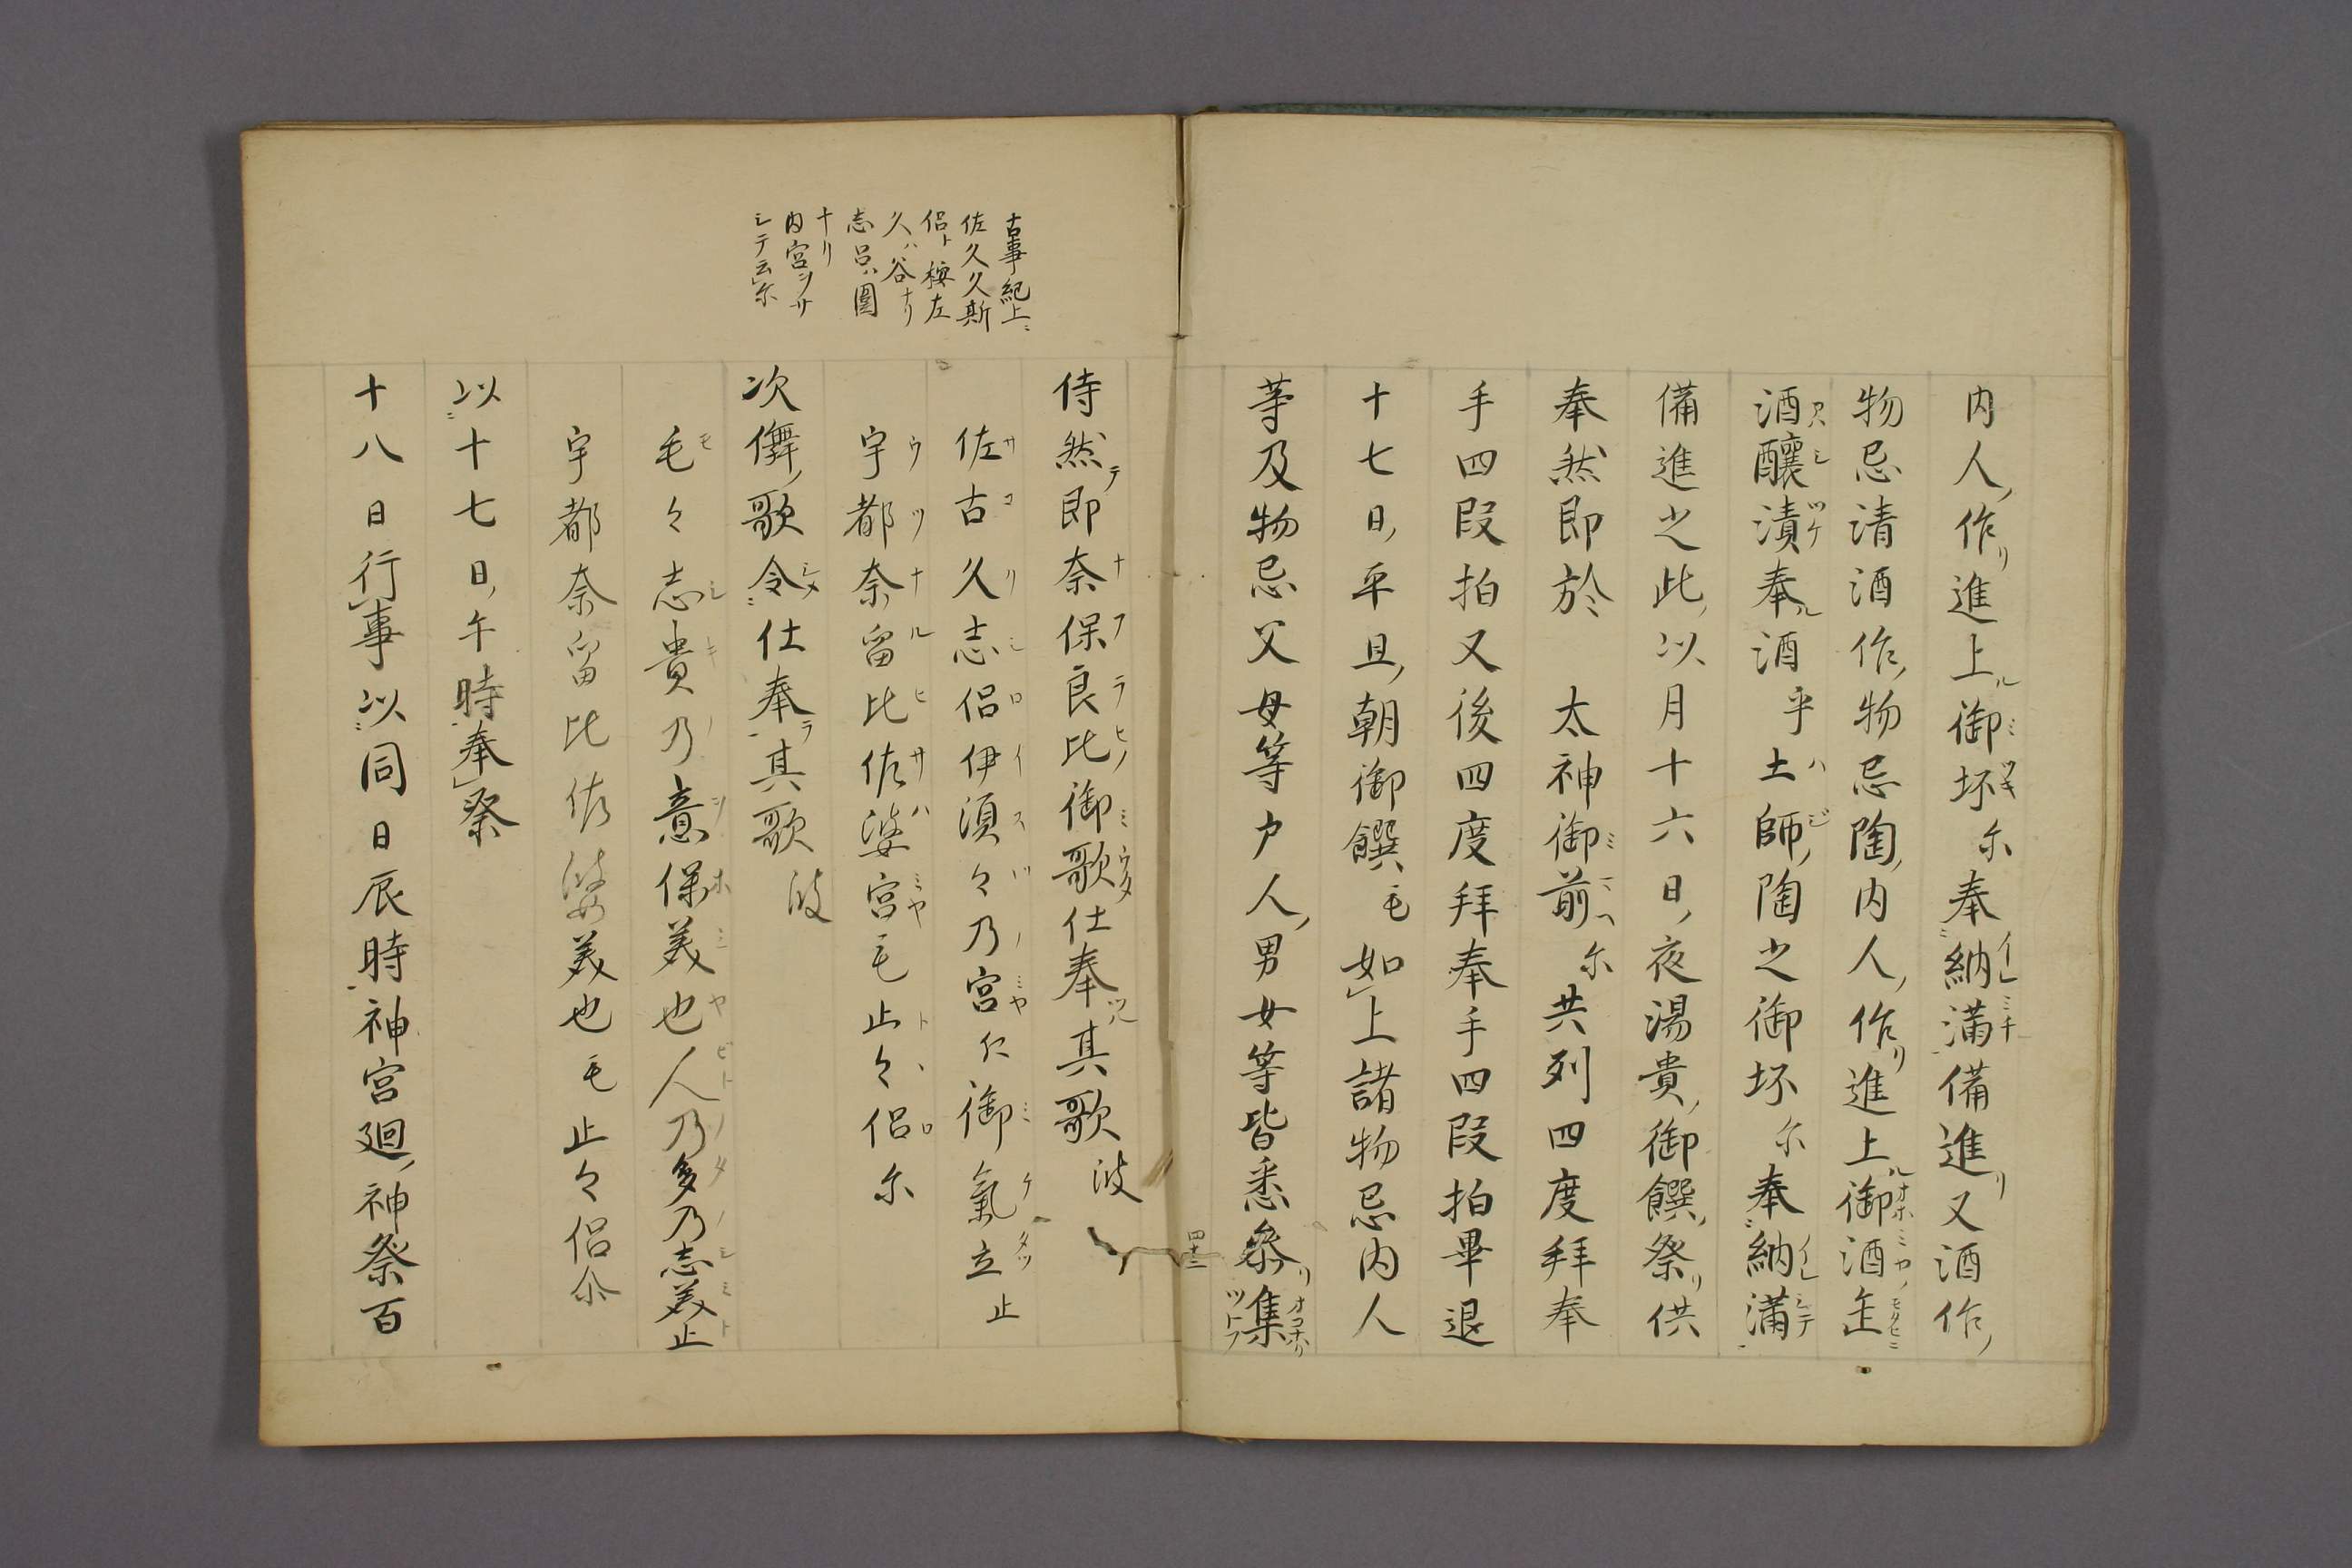 内人作進上御坏尓奉納満備進又酒作
物忌清酒作物忌陶内人作進上御酒缶
酒釀漬奉酒乎土師陶之御坏尓奉納満
備進之此以月十六日夜湯貴御饌祭供
奉然即於 太神御前尓共列四度拜奉
手四段拍又後四度拜奉手四段拍畢退
十七日平旦朝御饌毛如上諸物忌内人
等及物忌父母等戸人男女等皆悉参集
四十三
古事紀上ニ
佐久久斯
侶ト 按左
久ハ谷ナリ
志呂ハ圍
ナリ
内宮ヲサ
シテ云尓
侍然即奈保良比御歌仕奉其歌波
佐古久志侶伊須々乃宮仁御氣立止
宇都奈留比佐婆宮毛止々侶尓
次儛歌令仕奉其歌波
毛々志貴乃意保美也人乃多乃志美止
宇都奈留比佐婆美也毛止々侶尓
以十七日午時奉祭
十八日行事以同日辰時神宮廻神祭百